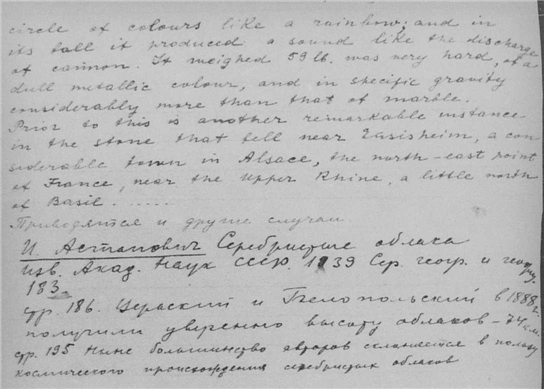 circle of colours like a rainbow; and in
its fall it produced a sound like the discharge
of cannon. It weighed 59 lb. was very hard, of a
dull metallic colour, and in specific gravity
considerably more than that of marble.
Prior to this is another remarkable instance
in the stone that fell near Ensisheim, a con
siderable town in Alsace, the north-east point
of France, near the Upper Rhine, a little north
of Basil. .....
Приводятся и другие случаи.
И. Астапович Серебристые облака
Изв. Акад. Наук СССР. 1939 Сер. геогр. и геофиз.
183
стр. 186. Цераский и Белопольский в 1888 г.
получили уверенно высоту облаков - 74 км.
стр 195 Ныне большинство авторов склоняется в пользу
космического происхождения серебристых облаков